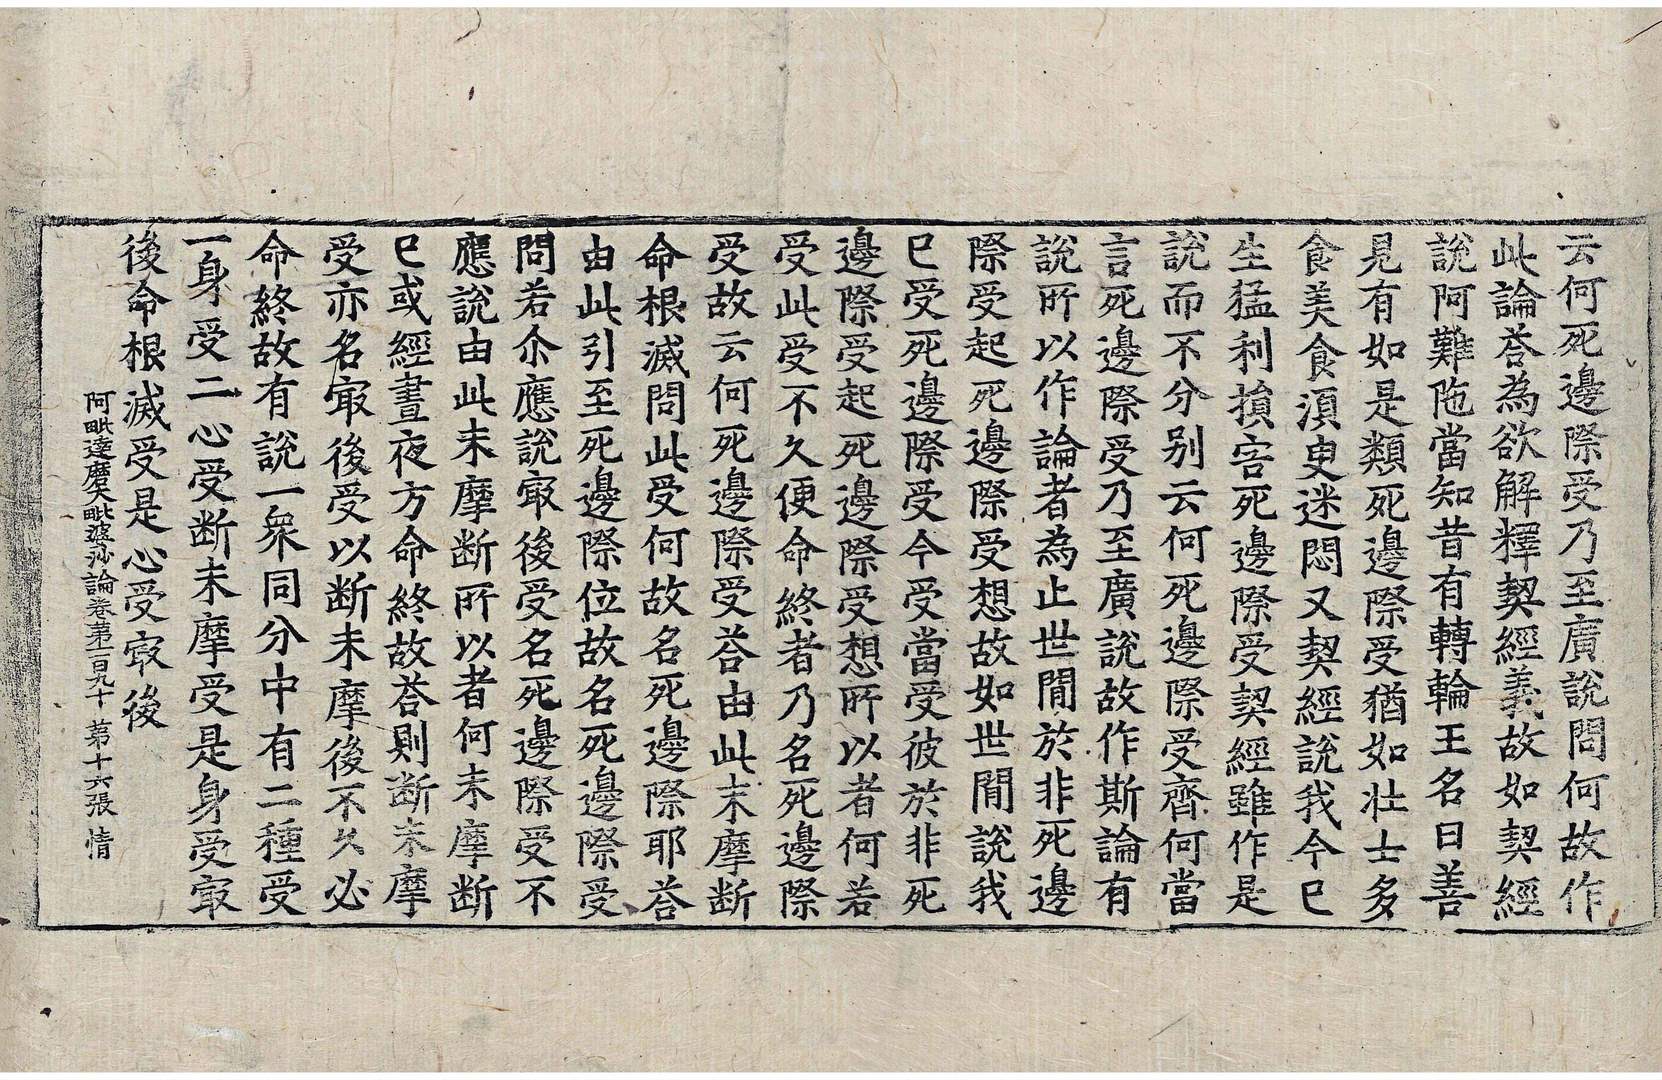 云何死邊際受乃至廣說問何故作
此論荅為欲解釋契經義故如契經
說阿難陁當知昔有轉輪王名曰善
見有如是類死邊際受猶如壯士多
食美食湏臾迷悶又契經說我今已
生猛利損害死邊際受契經雖作是
說而不分别云何死邊際受齊何當
言死邊際受乃至廣說故作斯論有
說所以作論者為止世間於非死邊
際受起死邊際受想故如世間說我
已受死邊際受今受當受彼於非死
邊際受起死邊際受想所以者何若
受此受不久便命終者乃名死邊際
受故云何死邊際受荅由此末摩斷
命根滅問此受何故名死邊際耶荅
由此引至死邊際位故名死邊際受
問若尒應說㝡後受名死邊際受不
應說由此末摩断所以者何末摩断
已或經晝夜方命終故荅則断末摩
受亦名㝡後受以断末摩後不久必
命終故有說一衆同分中有二種受
一身受二心受断末摩受是身受㝡
後命根滅受是心受㝡後
阿毗達磨大毗婆沙論卷第一百九十 第十六張 情